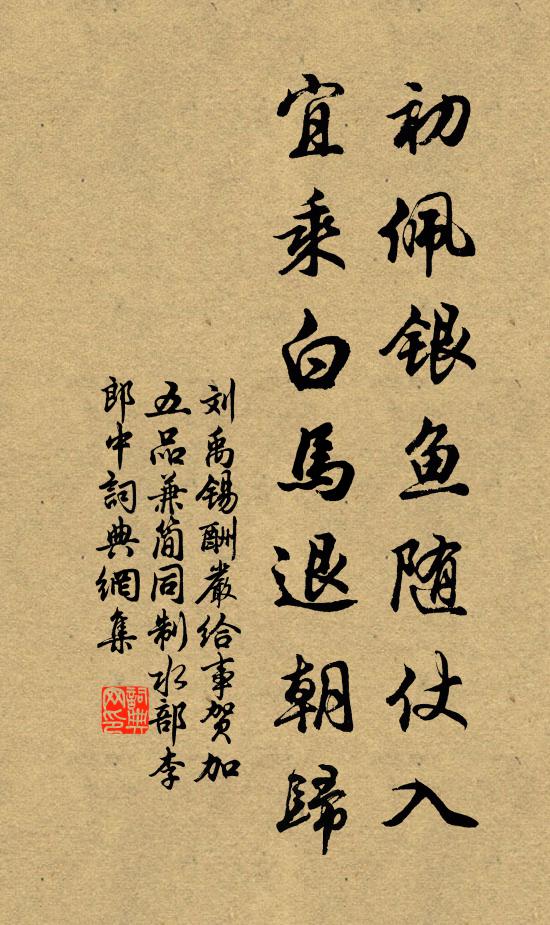 初佩银鱼随仗入
宜乘白馬退朝歸
刘禹锡酬嚴给事贺加
五品兼简同制水部李
郎中詞典網集
詞典
网印